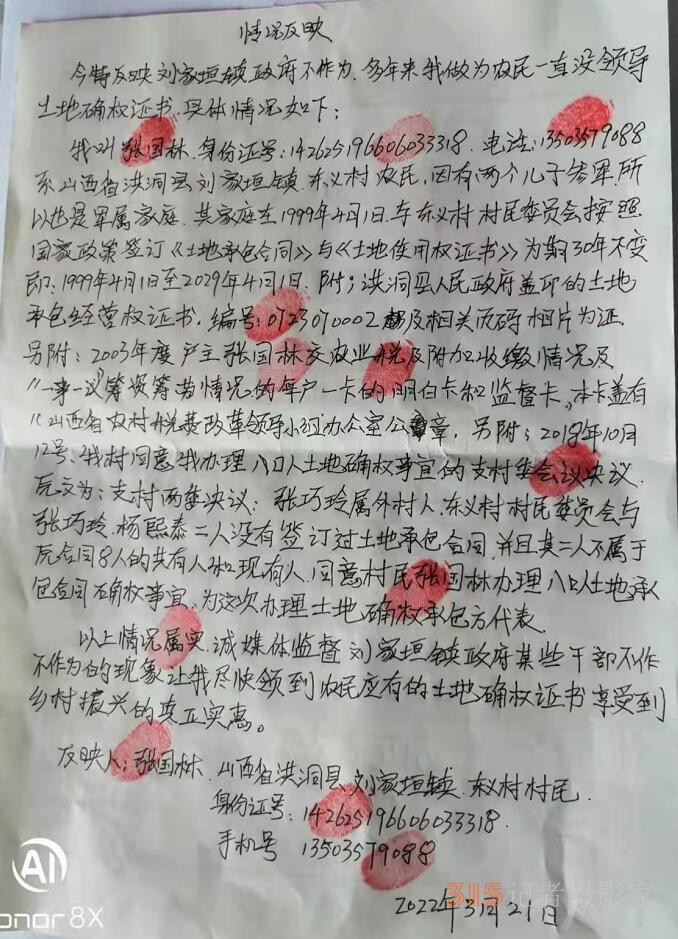 情况反映
今特反映刘家垣镇政府不作为,多年来我做为农民一直没领导
土地确权证书.具体情况如下:
我叫张国林.身份证号:142625196606033318.电话:13503579088
系山西省洪洞县刘家垣镇.东义村农民,因有两个儿子参军.所
以也是军属家庭.其家庭在1999年4月1日.与东义村村民委员会按照
国家政策签订《土地承包合同》与《土地使用权证书》为期30年不变
即:1999年4月1日至2029年4月1日.附;洪洞县人民政府盖印的土地
承包经营权证书.编号:0723070002 及相关页码相片为证.
另附:2003年度户主张国林交农业税及附加收缴情况及
"一事一议"筹资筹劳情况的每户一卡的明白卡和监督卡.本卡盖有
"山西省农村税费改革领导小组办公室公章章,另附:2018年10月
12号.我村同意我办理八口人土地确权事宜的支村委会议决议.
原文为:支村两委决议:张巧玲属外村人.东义村村民委员会与
张巧玲.杨熙泰二人没有签订过土地承包合同.并且其二人不属于
原合同8人的共有人和现有人.同意村民张国林办理八口人土地承
包合同确权事宜.为这次办理土地确权承包方代表.
以上情况属实.诚媒体监督刘家垣镇政府某些干部不作
不作为的现象让我尽快领到农民应有的土地确权证书享受到
乡村振兴的真正实惠。
反映人:张国林.山西省洪洞县.刘家垣镇.东义村村民.
身份证号:142625196606033318.
手机号 13503579088
2022年3月21日
AI
onor 8X
315记者摄影家